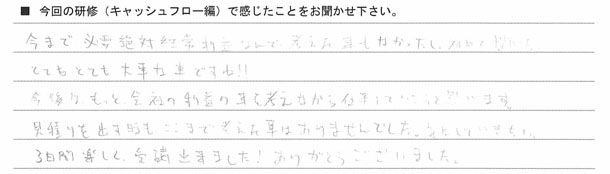 ■ 今回の研修（キャッシュフロー編）で感じたことをお聞かせ下さい。
今まで必要絶対経常利益なんて考えた事もなかったし、
とてもとても大事な事ですね!!
今後は、もっと会社の利益の事を考えながら仕事していこうと思います。
見積りを出す時も ここまで考えた事はありませんでした。
3日間楽しく、受講出来ました！ありがとうございました。